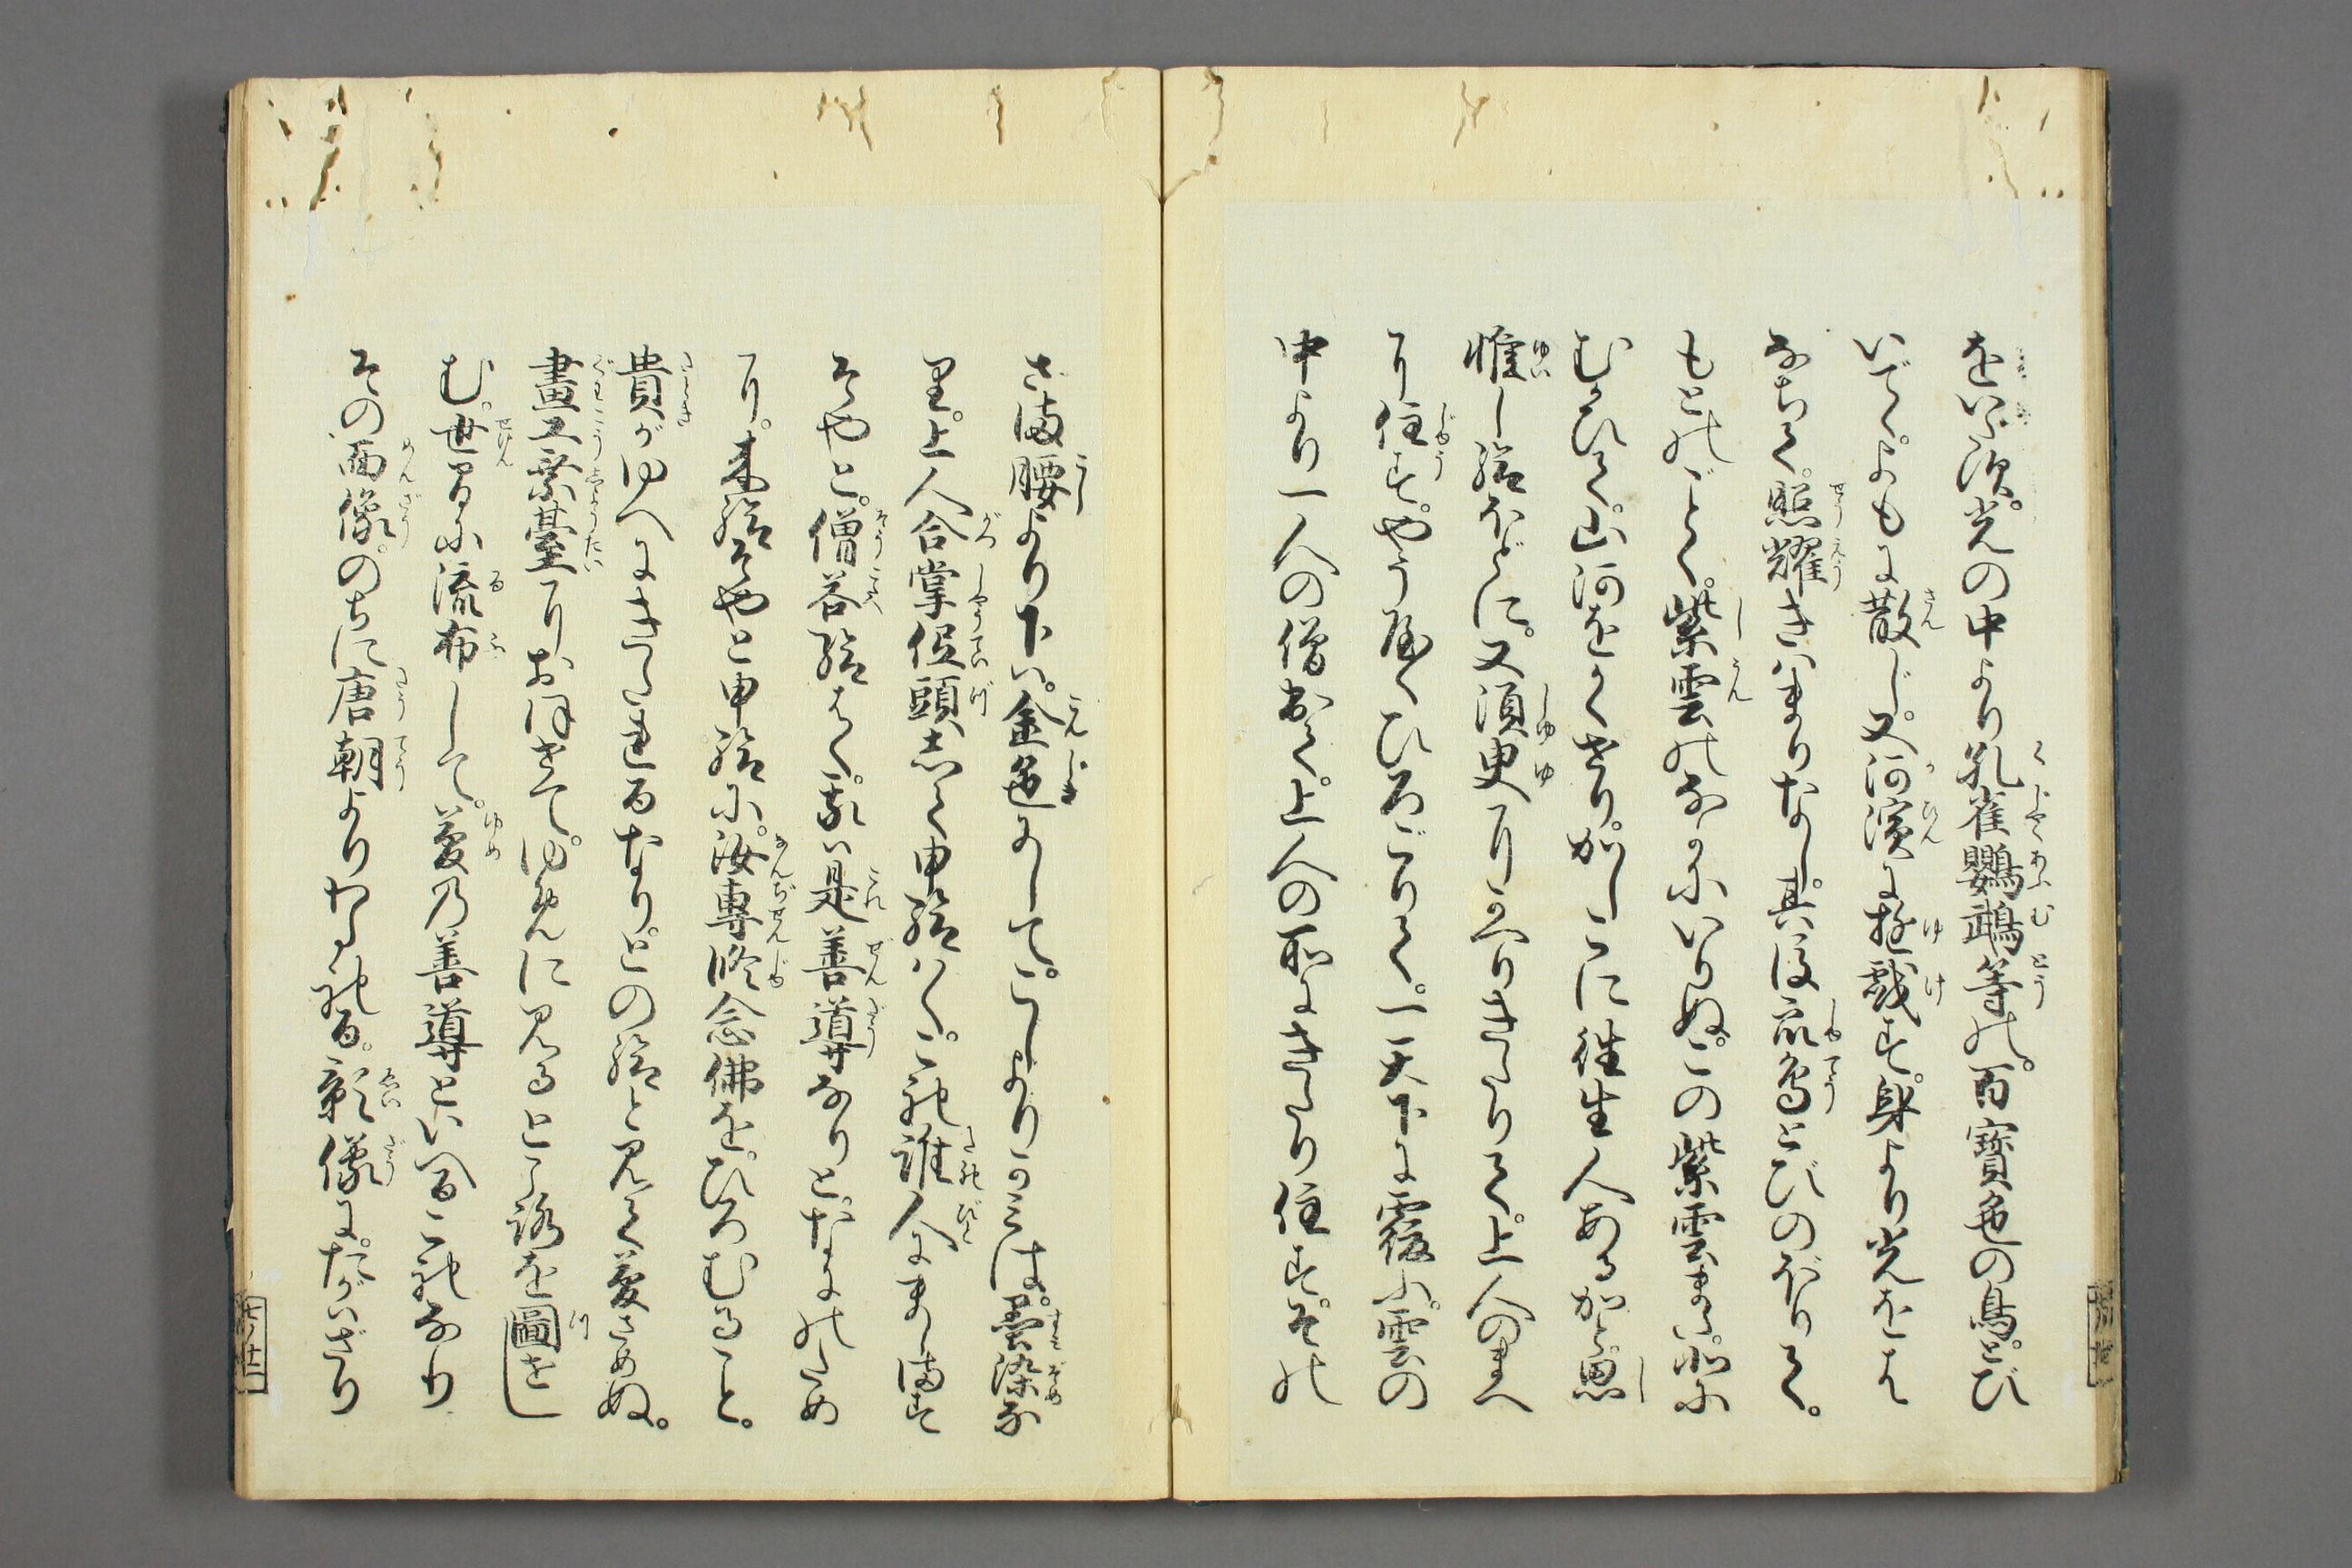 をいだす。光の中より孔雀鸚鵡等の。百寶色の鳥とび
いでゝ。よもに散じ。又河濱に遊戯す。身より光をは
なちて。照耀きはまりなし。其後衆鳥とびのぼりて。
もとのごとく。紫雲のなかにいりぬ。この紫雲また。北に
むかひて。山河をかくせり。かしこに往生人あるかと思
惟し給ほどに。又須臾にかへりきたりて。上人のまへ
に住す。やうやくひろごりて。一天下に覆ふ。雲の
中より一人の僧出て。上人の所にきたり住す。その
さま腰より下は。金色にして。こしよりかみは。墨染な
り。上人合掌低頭して申給はく。これ誰人にましますぞ
そやと。僧答給はく。我は是善導なりと。なにのため
に。来給ぞやと申給に。汝專修念佛を。ひろむること。
貴がゆへにきたれるなりとの給と見て夢さめぬ。
畫工乗臺におほせて。ゆめに見るところを圖せし
む。世間に流布して。夢の善導といへるこれなり
その面像。のちに唐朝よりわたれる。影像に。たがはざり